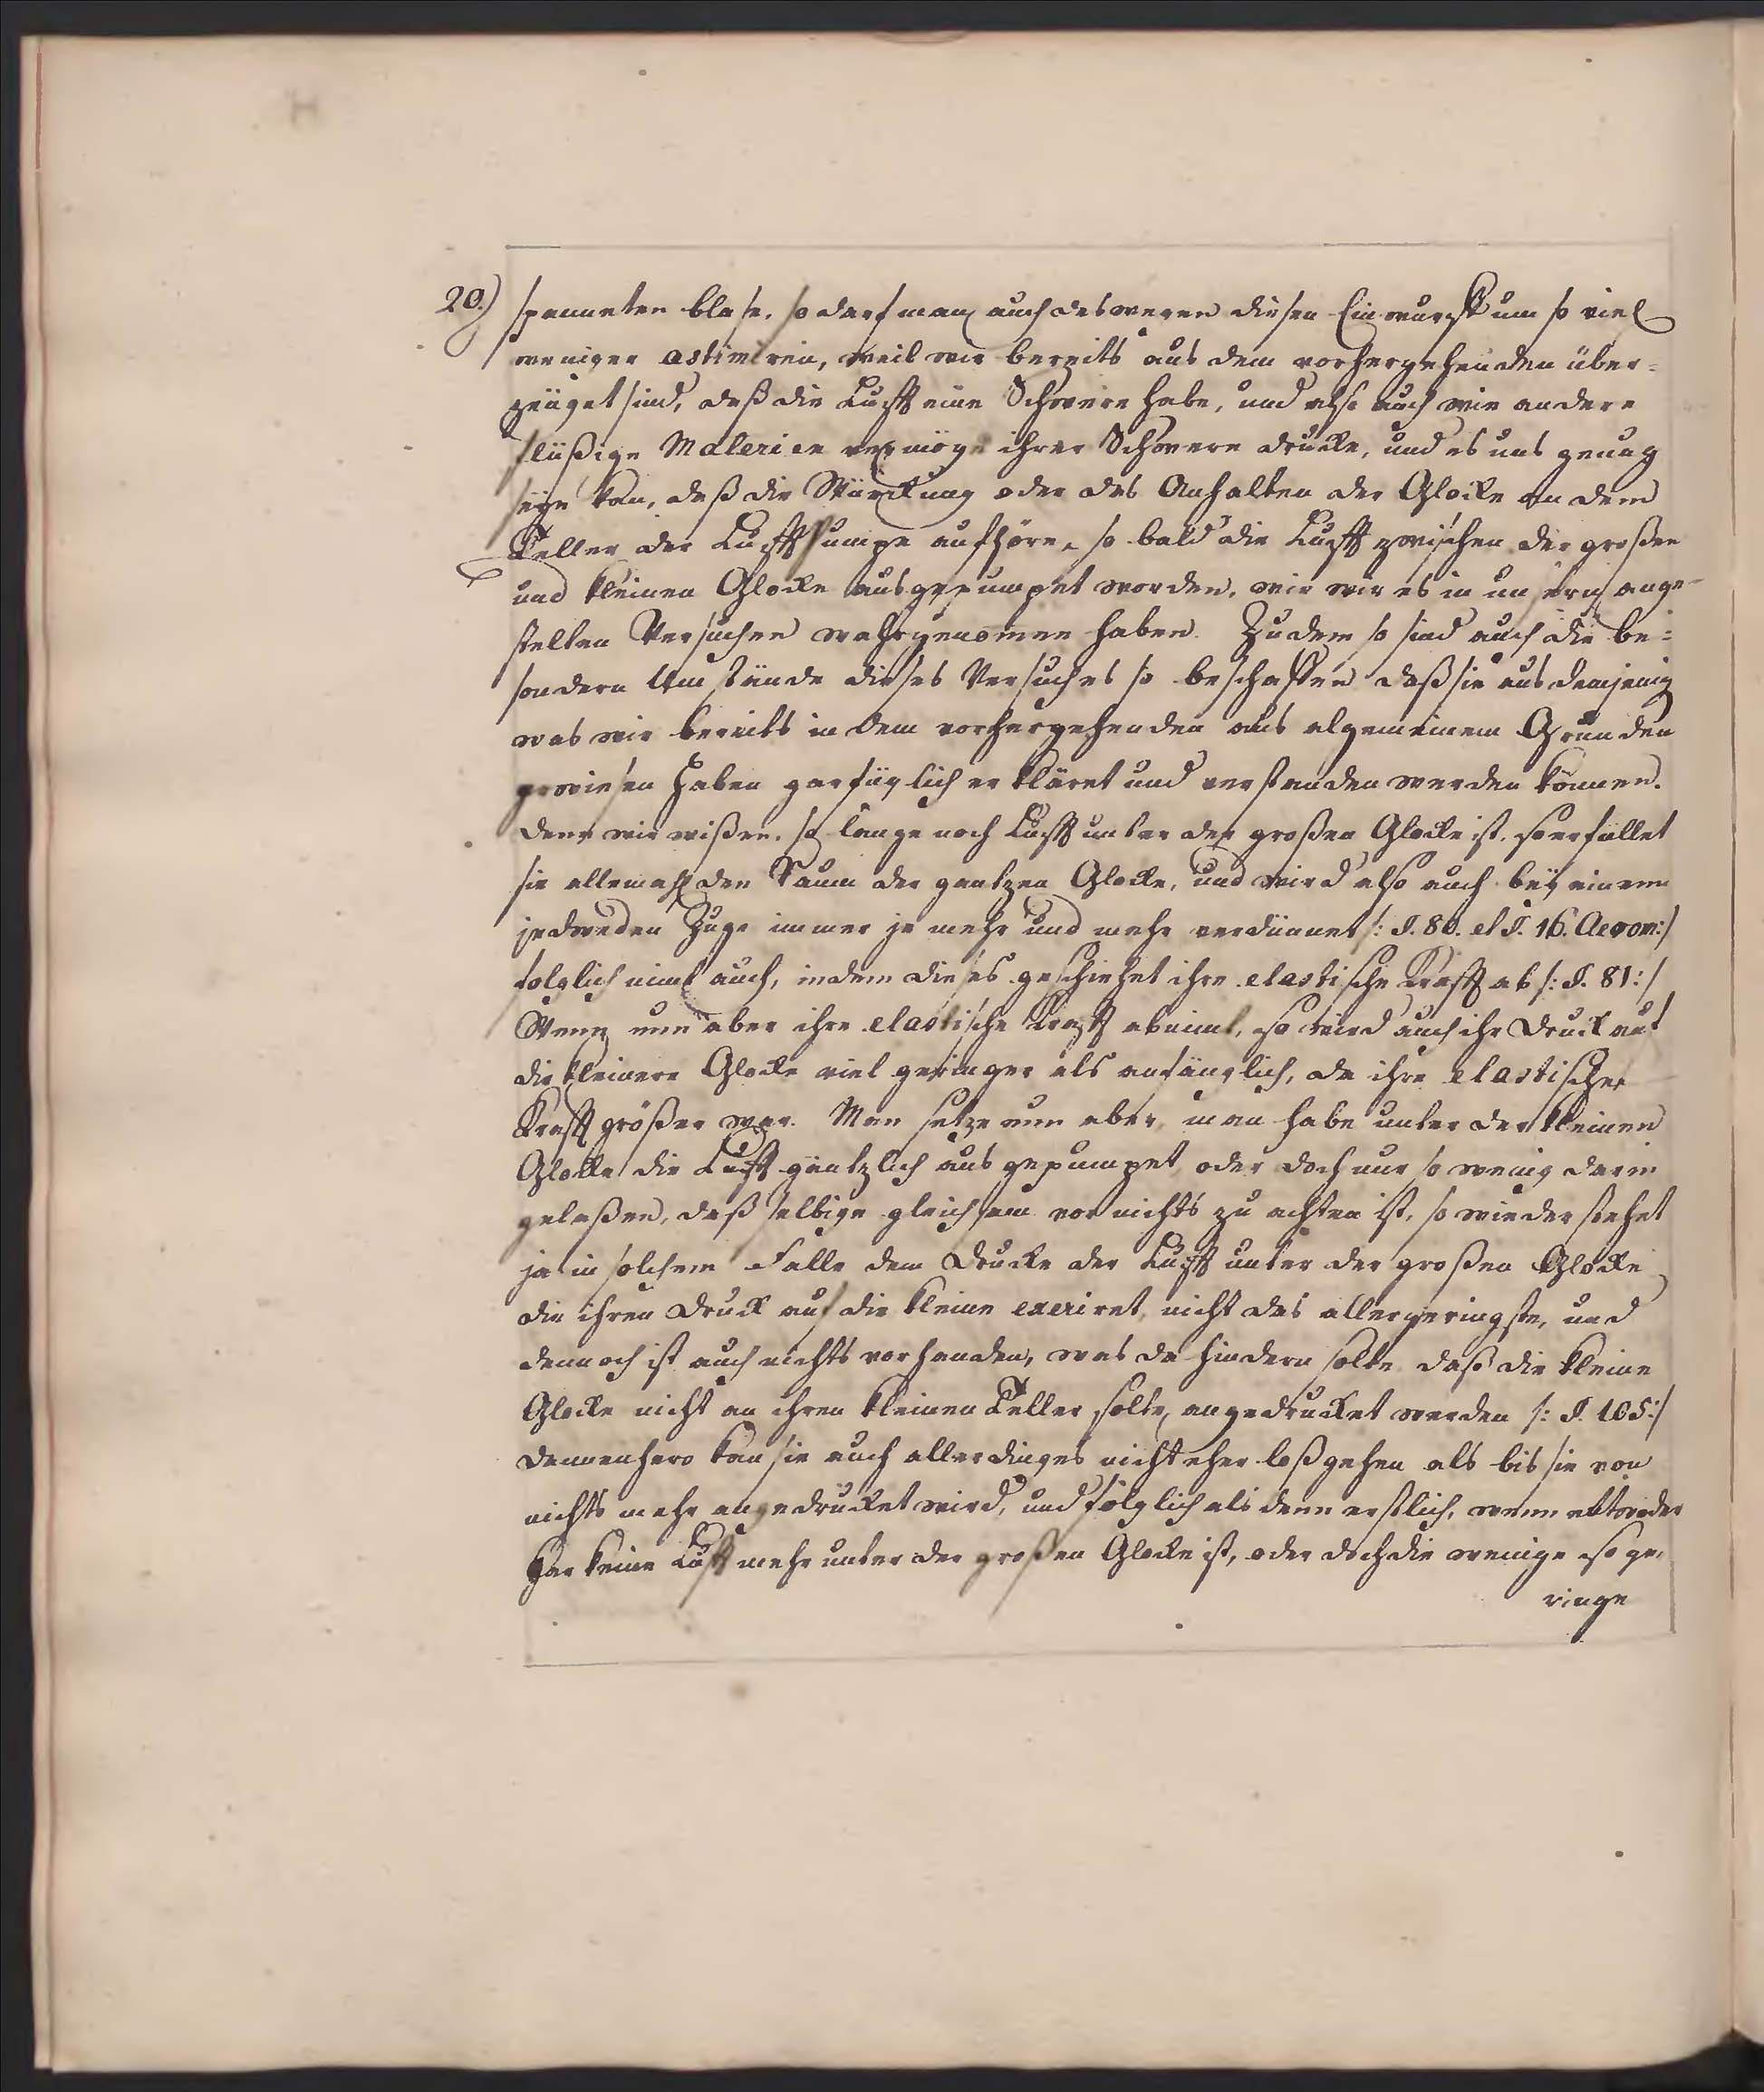 20.) spanneten blase, so darf man auch deswegen diesen Einwurff um so viel
weniger astimiren, weil wir bereits aus dem vorhergehenden über-
zeüget sind, daß die Lufft eine Schwere habe, und also auch wie andere
flüßige Materien vermöge ihrer Schwere drucke, und es uns genug
seyn kan, daß die Würckung oder das Anhalten der Glocke an dem
Teller der Lufftpumpe aufhöre, so bald die Lufft zwischen der großen
und kleinen Glocke ausgepumpet worden, wie wir es in unsern ange-
stelten Versuchen wahrgenomen haben. Zudem so sind auch die be-
sondern Umstände dieses Versuches so beschaffen daß sie aus demjenig
was wir bereits in dem vorhergehenden aus algemeinem Grunden
gewiesen haben gar füglich erkläret und verstanden werden können.
denn wir wißen, so lange noch Lufft unter der großen Glocke ist, so erfüllet
sie allemahl den Raum der gantzen Glocke, und wird also auch beÿ einem
jedweden Zuge immer je mehr und mehr verdünnet /: §. 80. et §. 16. Aerom:/
folglich nimt auch, indem dieses geschiehet ihre elastische Krafft ab /: §. 81:/
Wenn nun aber ihre elastische Krafft abnimt, so wird auch ihr Druck auf
die kleinere Glocke viel geringer als anfänglich, da ihre elastische
Krafft größer war. Man setze nun aber, man habe unter der kleinen
Glocke die Lufft gäntzlich ausgepumpet, oder doch nur so wenig darin
gelaßen, daß selbige gleichsam vor nichts zu achten ist, so wiederstehet
ja in solchem Falle dem Drucke der Lufft unter der großen Glocke
die ihren Druck auf die kleine exeriret, nicht das allergeringste, und
dennoch ist auch nichts vorhanden, was da hindern solte daß die kleine
Glocke nicht an ihren kleinen Teller solte angedrucket werden /: §. 105:/
Dannenhero kan sie auch allerdinges nicht eher loßgehen als bis sie von
nichts mehr angedrucket wird, und folglich als denn erstlich, wenn entweder
gar keine Lufft mehr unter der großen Glocke ist, oder doch die wenige so ge-
ringe